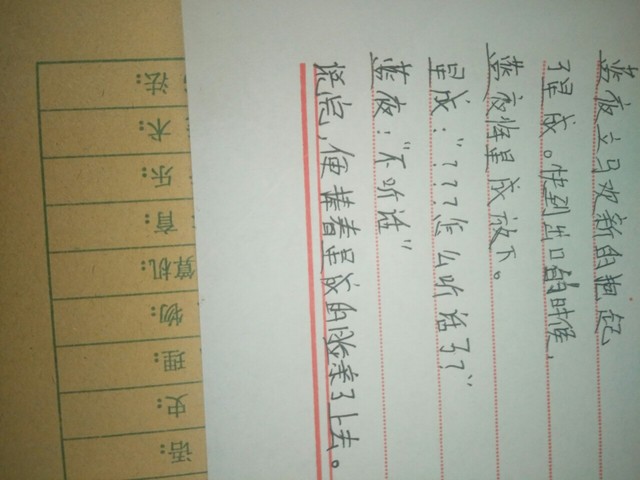 蓝夜立马欢新的抱起
了星成。快到出口的时候，
蓝夜将星成放下。
星成：“？？？怎么听话了？”
蓝夜：“不听话”
说完，便捧着星成的脸亲了上去。
法：
术：
乐：
育：
算机：
物：
理：
史：
语：